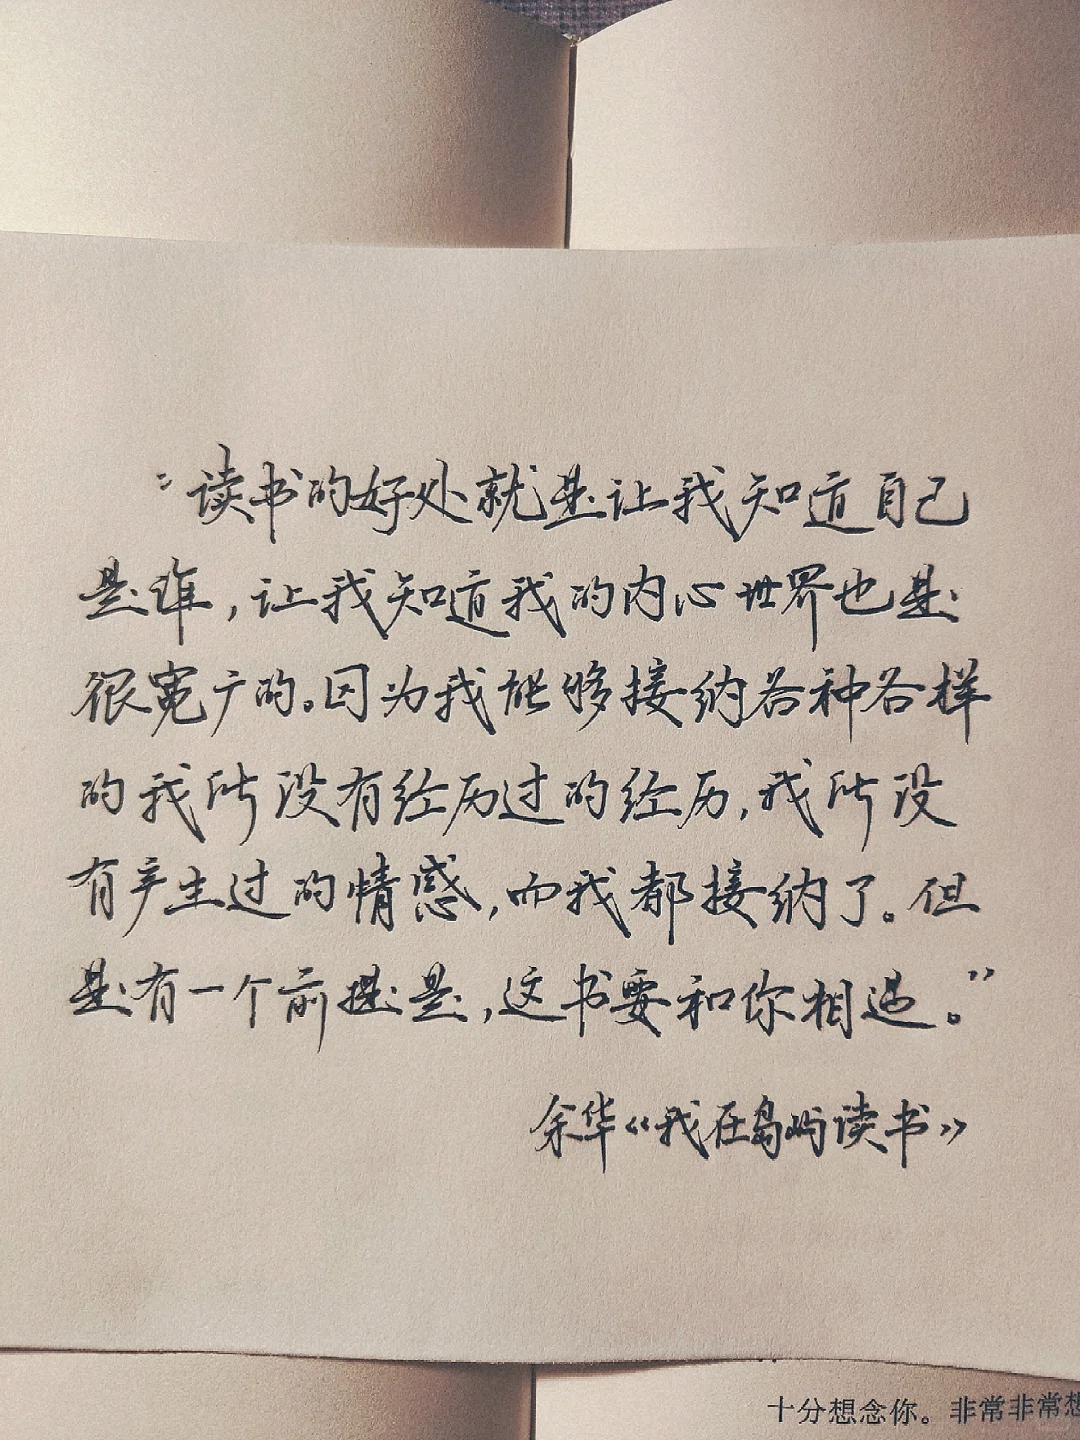 “读书的好处就是让我知道自己
是谁，让我知道我的内心世界也是
很宽广的。因为我能够接纳各种各样
的我所没有经历过的经历，我所没
有产生过的情感，而我都接纳了。但
是有一个前提是，这书要和你相遇。”
余华《我在岛屿读书》
十分想念你。非常非常想